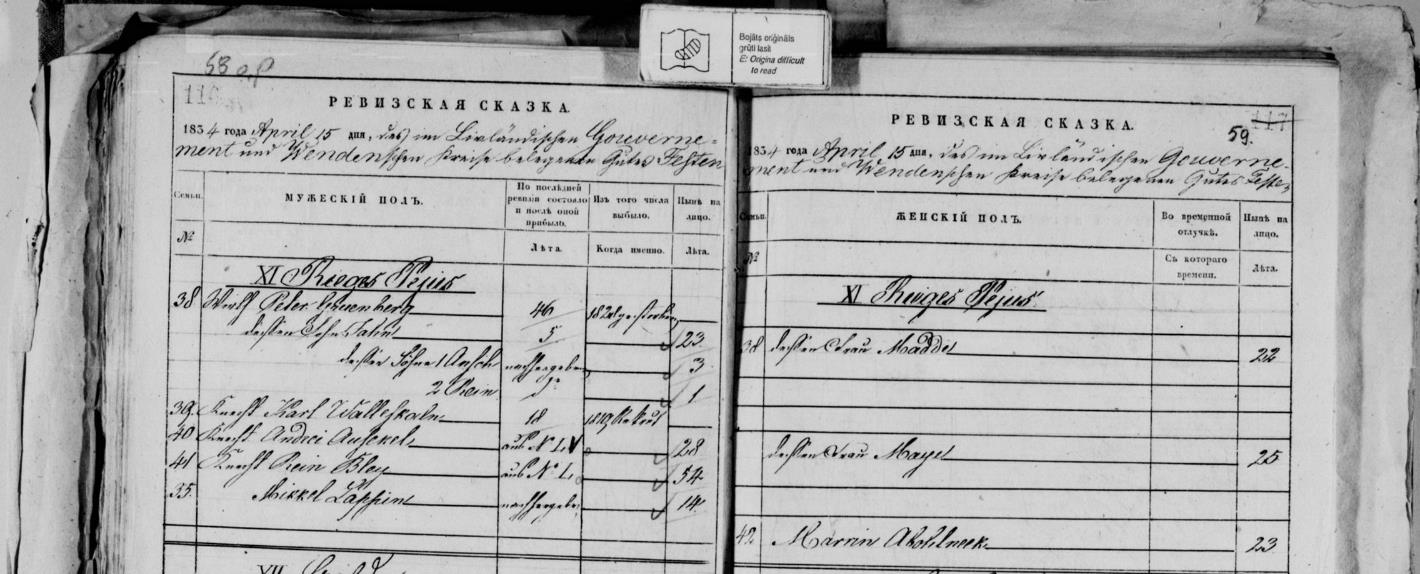 Bojāts oriģināls
grūti lasīt
E: Origina difficult
to read
58 op
116
РЕВИЗСКАЯ СКАЗКА.
1834 года April 15 дня, des im Livländischen Gouverne-
ment und Wendenschen Kreise belegenen Gutes Festen
Семьи. МУЖЕСКІЙ ПОЛЪ. По послѣдней ревизіи состояло и послѣ оной прибыло. Изъ того числа выбыло. Нынѣ на лицо.
№ Лѣта. Когда именно. Лѣта.
XI Ruiges Pejus
38 Wirth Peter 46 1824 gestorben
dessen Sohn Jahn 5 23
dessen Söhne 1 Ansch nachgegeben 3
2 Rein do 1
39. Knecht Karl Walleskaln 18 1819 Rekrut
40 Knecht Andrei Ausekel aus № 28
41 Knecht Rein Bley aus № 54
35. Mikkel Lappin 14
59.
117
РЕВИЗСКАЯ СКАЗКА.
1834 года April 15 дня, des im Livländischen Gouverne-
ment und Wendenschen Kreise belegenen Gutes Festen
Семьи. ЖЕНСКІЙ ПОЛЪ. Во временной отлучкѣ. Нынѣ на лицо.
№ Съ котораго времени. Лѣта.
XI Ruiges Pejus.
38 dessen Frau Madde 22
dessen Frau Maye 25
42 Marrin 23